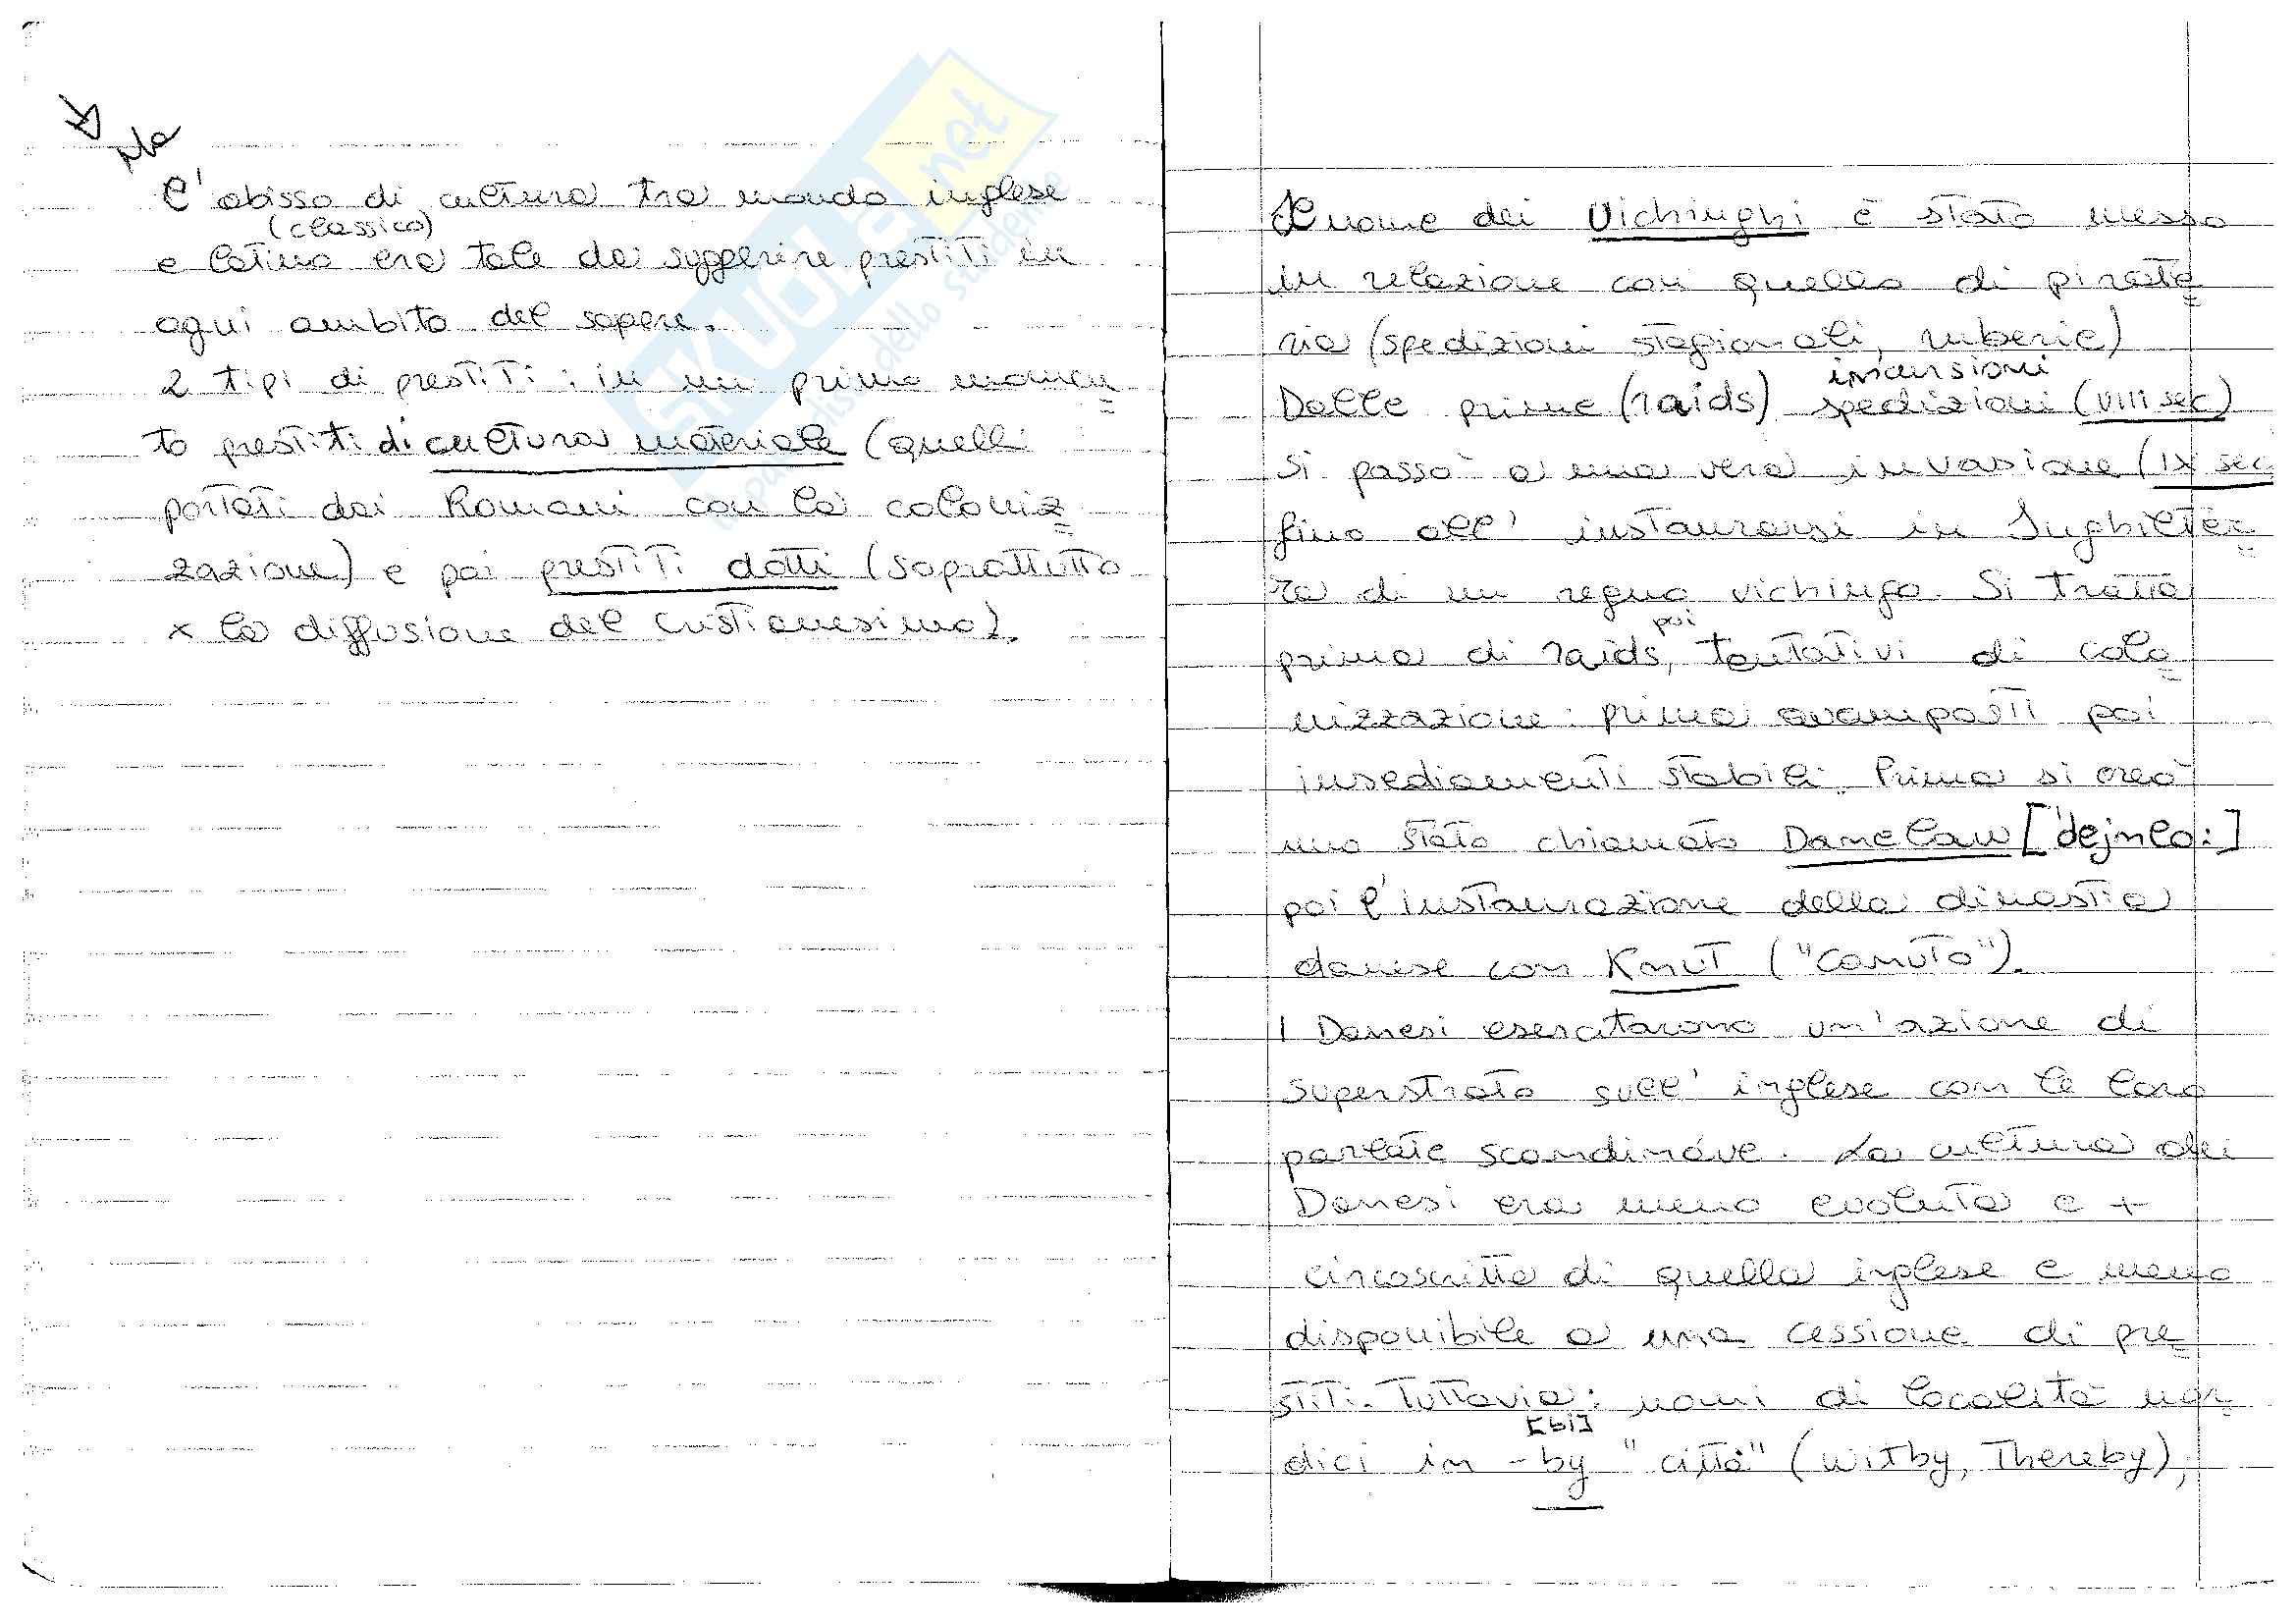 Ma
l'abisso di cultura tra mondo inglese
(classico)
e latino era tale da suggerire prestiti in
ogni ambito del sapere.
2 tipi di prestiti: in un primo momen=
to prestiti di cultura materiale (quelli
portati dai Romani con la coloniz=
zazione) e poi prestiti dotti (soprattutto
x la diffusione del cristianesimo).
SKUOLA.net
il paradiso dello studente
Il nome dei Vichinghi è stato messo
in relazione con quello di pirate=
ria (spedizioni stagionali, ruberie)
incursioni
Dalle prime (raids) spedizioni (VIII sec)
si passò a una vera invasione (IX sec
fino all' instaurarsi in Inghilter=
ra di un regno vichingo. Si tratta
poi
prima di raids, tentativi di colo=
nizzazione: prima avamposti poi
insediamenti stabili. Prima si creò
uno stato chiamato Danelaw ['dejnlo:]
poi l'instaurazione della dinastia
danese con Knut ("Canuto").
I Danesi esercitarono un'azione di
superstrato sull' inglese con le loro
parlate scandinave. La cultura dei
Danesi era meno evoluta e +
circoscritta di quella inglese e meno
disponibile a una cessione di pre=
stiti. Tuttavia: nomi di località nor=
[bi]
dici in -by "città" (Witby, Thereby),